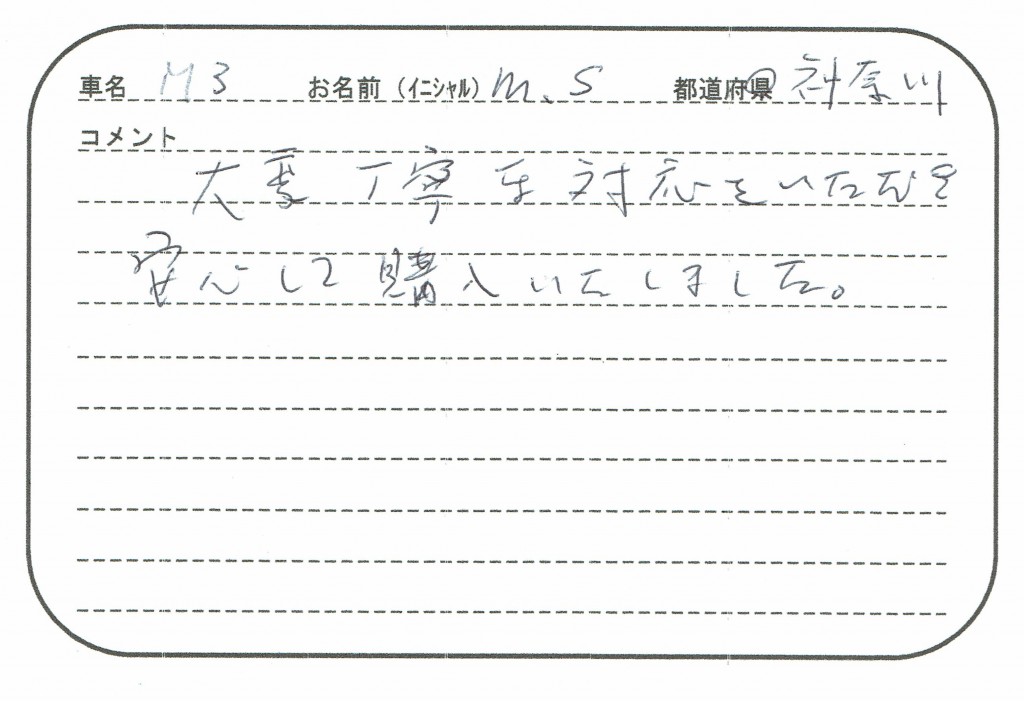 車名 M3 お名前(イニシャル) M.S 都道府県 神奈川
コメント
大変丁寧な対応をいただき
安心して購入いたしました。